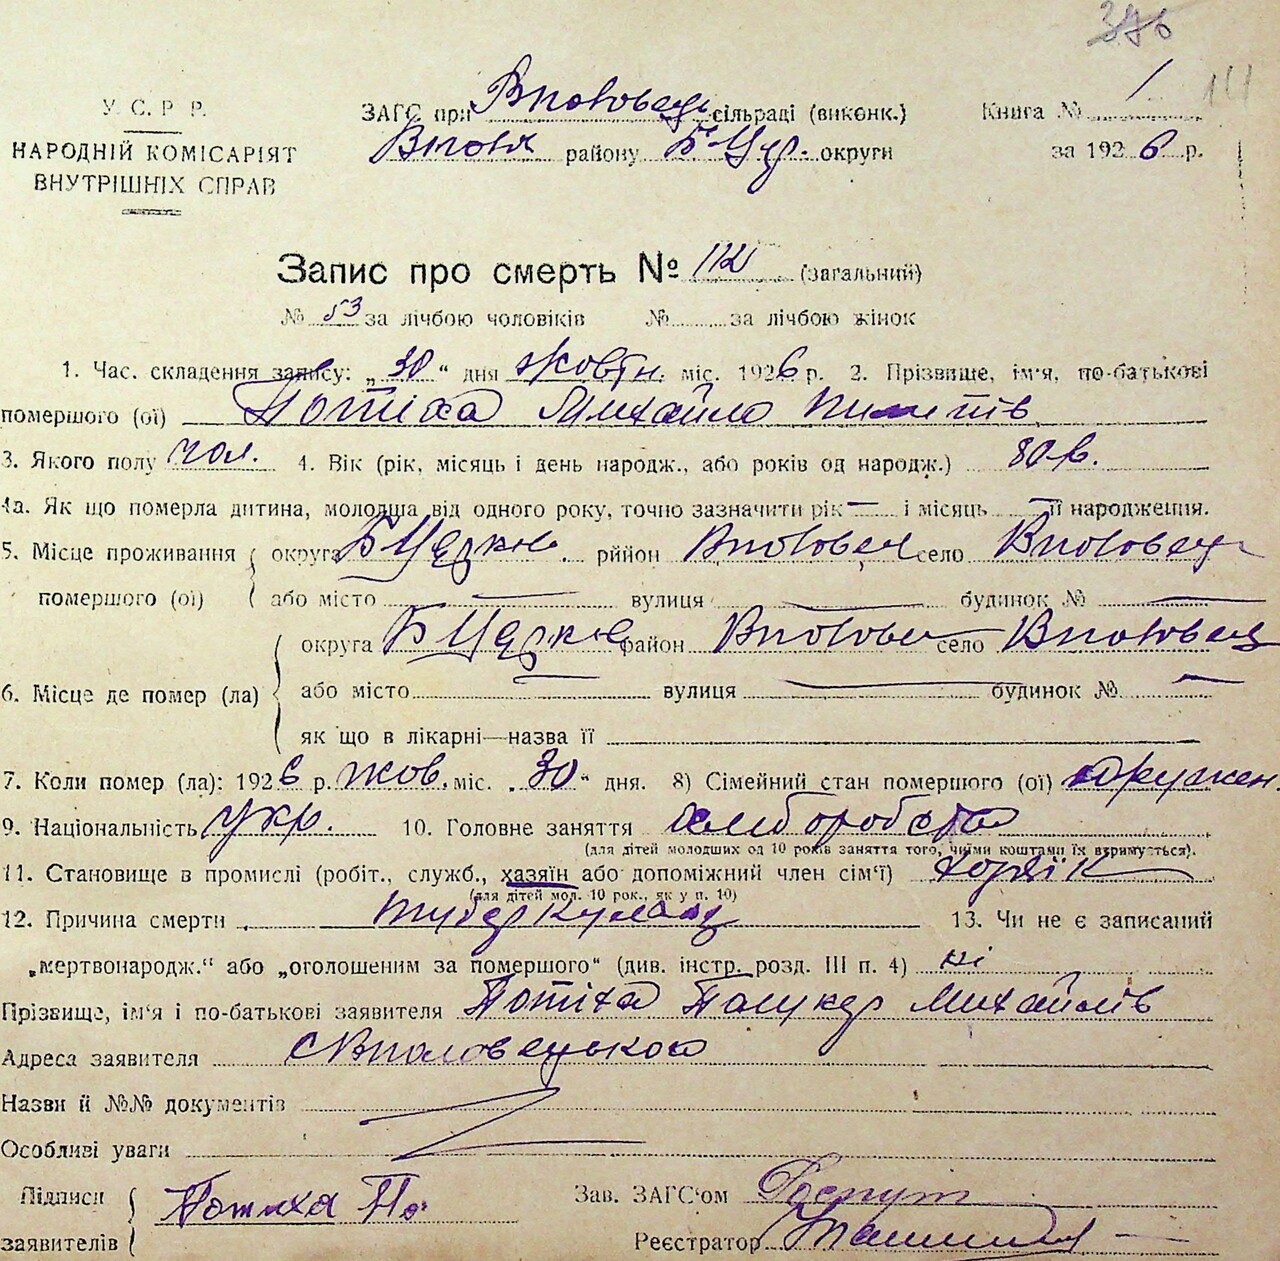 376
У. С. Р. Р.
НАРОДНІЙ КОМІСАРІЯТ
ВНУТРІШНІХ СПРАВ
ЗАГС при сільраді (виконк.)
району Б Цер. округи
Книга № 1
за 1926 р.
Запис про смерть № 112 (загальний)
№ 53 за лічбою чоловіків № за лічбою жінок
1. Час. складення запису: „30“ дня жовтн. міс. 1926 р. 2. Прізвище, ім'я, по-батькові
помершого (ої) Потіха Михайло Пилипів
3. Якого полу чол. 4. Вік (рік, місяць і день народж., або років од народж.) 80 в.
4а. Як що померла дитина, молодша від одного року, точно зазначити рік — і місяць — її народження.
5. Місце проживання округа Б Церков рййон село
помершого (ої) або місто — вулиця — будинок № —
округа Б Церков район село
6. Місце де помер (ла) або місто — вулиця — будинок № —
як що в лікарні—назва її
7. Коли помер (ла): 1926 р. жов. міс. 30“ дня. 8) Сімейний стан помершого (ої) дружен.
9. Національність Укр. 10. Головне заняття хлиборобство
(для дітей молодших од 10 років заняття того, чиїми коштами їх втримується).
11. Становище в промислі (робіт., служб., хазяїн або допоміжний член сім'ї)
(для дітей мол. 10 рок., як у п. 10)
12. Причина смерти туберкульоз 13. Чи не є записаний
„мертвонародж.“ або „оголошеним за помершого“ (див. інстр. розд. III п. 4) ні
Прізвище, ім'я і по-батькові заявителя Потіха Михайлів
Адреса заявителя
Назви й №№ документів
Особливі уваги
Підписи
заявителів Потиха По
Зав. ЗАГС'ом
Реєстратор